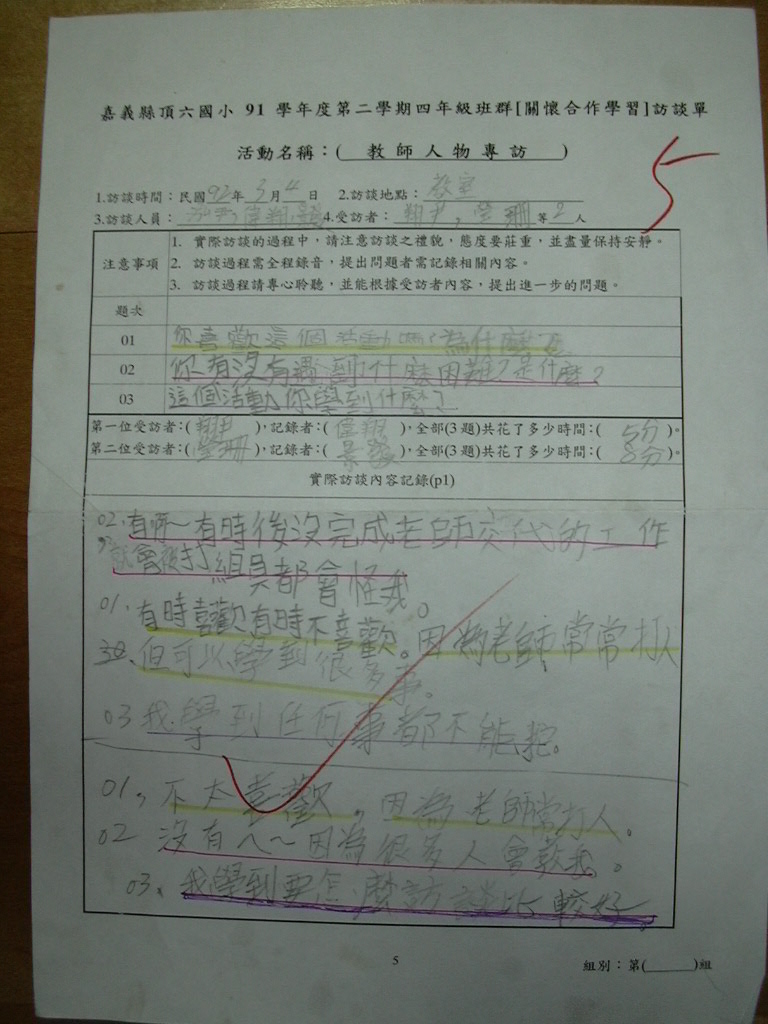 嘉義縣頂六國小 91 學年度第二學期四年級班群[關懷合作學習]訪談單
活動名稱：( 教師人物專訪 )
5
1.訪談時間：民國92年3月4日 2.訪談地點：教室
3.訪談人員： 偉翔 4.受訪者：翔尹，瑩珊等2人
注意事項
1. 實際訪談的過程中，請注意訪談之禮貌，態度要莊重，並盡量保持安靜。
2. 訪談過程需全程錄音，提出問題者需記錄相關內容。
3. 訪談過程請專心聆聽，並能根據受訪者內容，提出進一步的問題。
題次
01 你喜歡這個活動嗎?為什麼
02 你有沒有遇到什麼困難?是什麼?
03 這個活動你學到什麼?
第一位受訪者：(翔尹)，記錄者：(偉翔)，全部(3題)共花了多少時間：(5分)。
第二位受訪者：(瑩珊)，記錄者：( )，全部(3題)共花了多少時間：(8分)。
實際訪談內容記錄(p1)
02.有啊～有時後沒完成老師交代的工作
就會被打組員都會怪我。
01.有時喜歡有時不喜歡。因為老師常常打人
但可以學到很多事。
03 我學到任何事都不能拖。
01,不太喜歡,因為老師常打人。
02 沒有ㄟ～因為很多人會教我。
03、我學到要怎麼訪談比較好
5
組別：第( )組